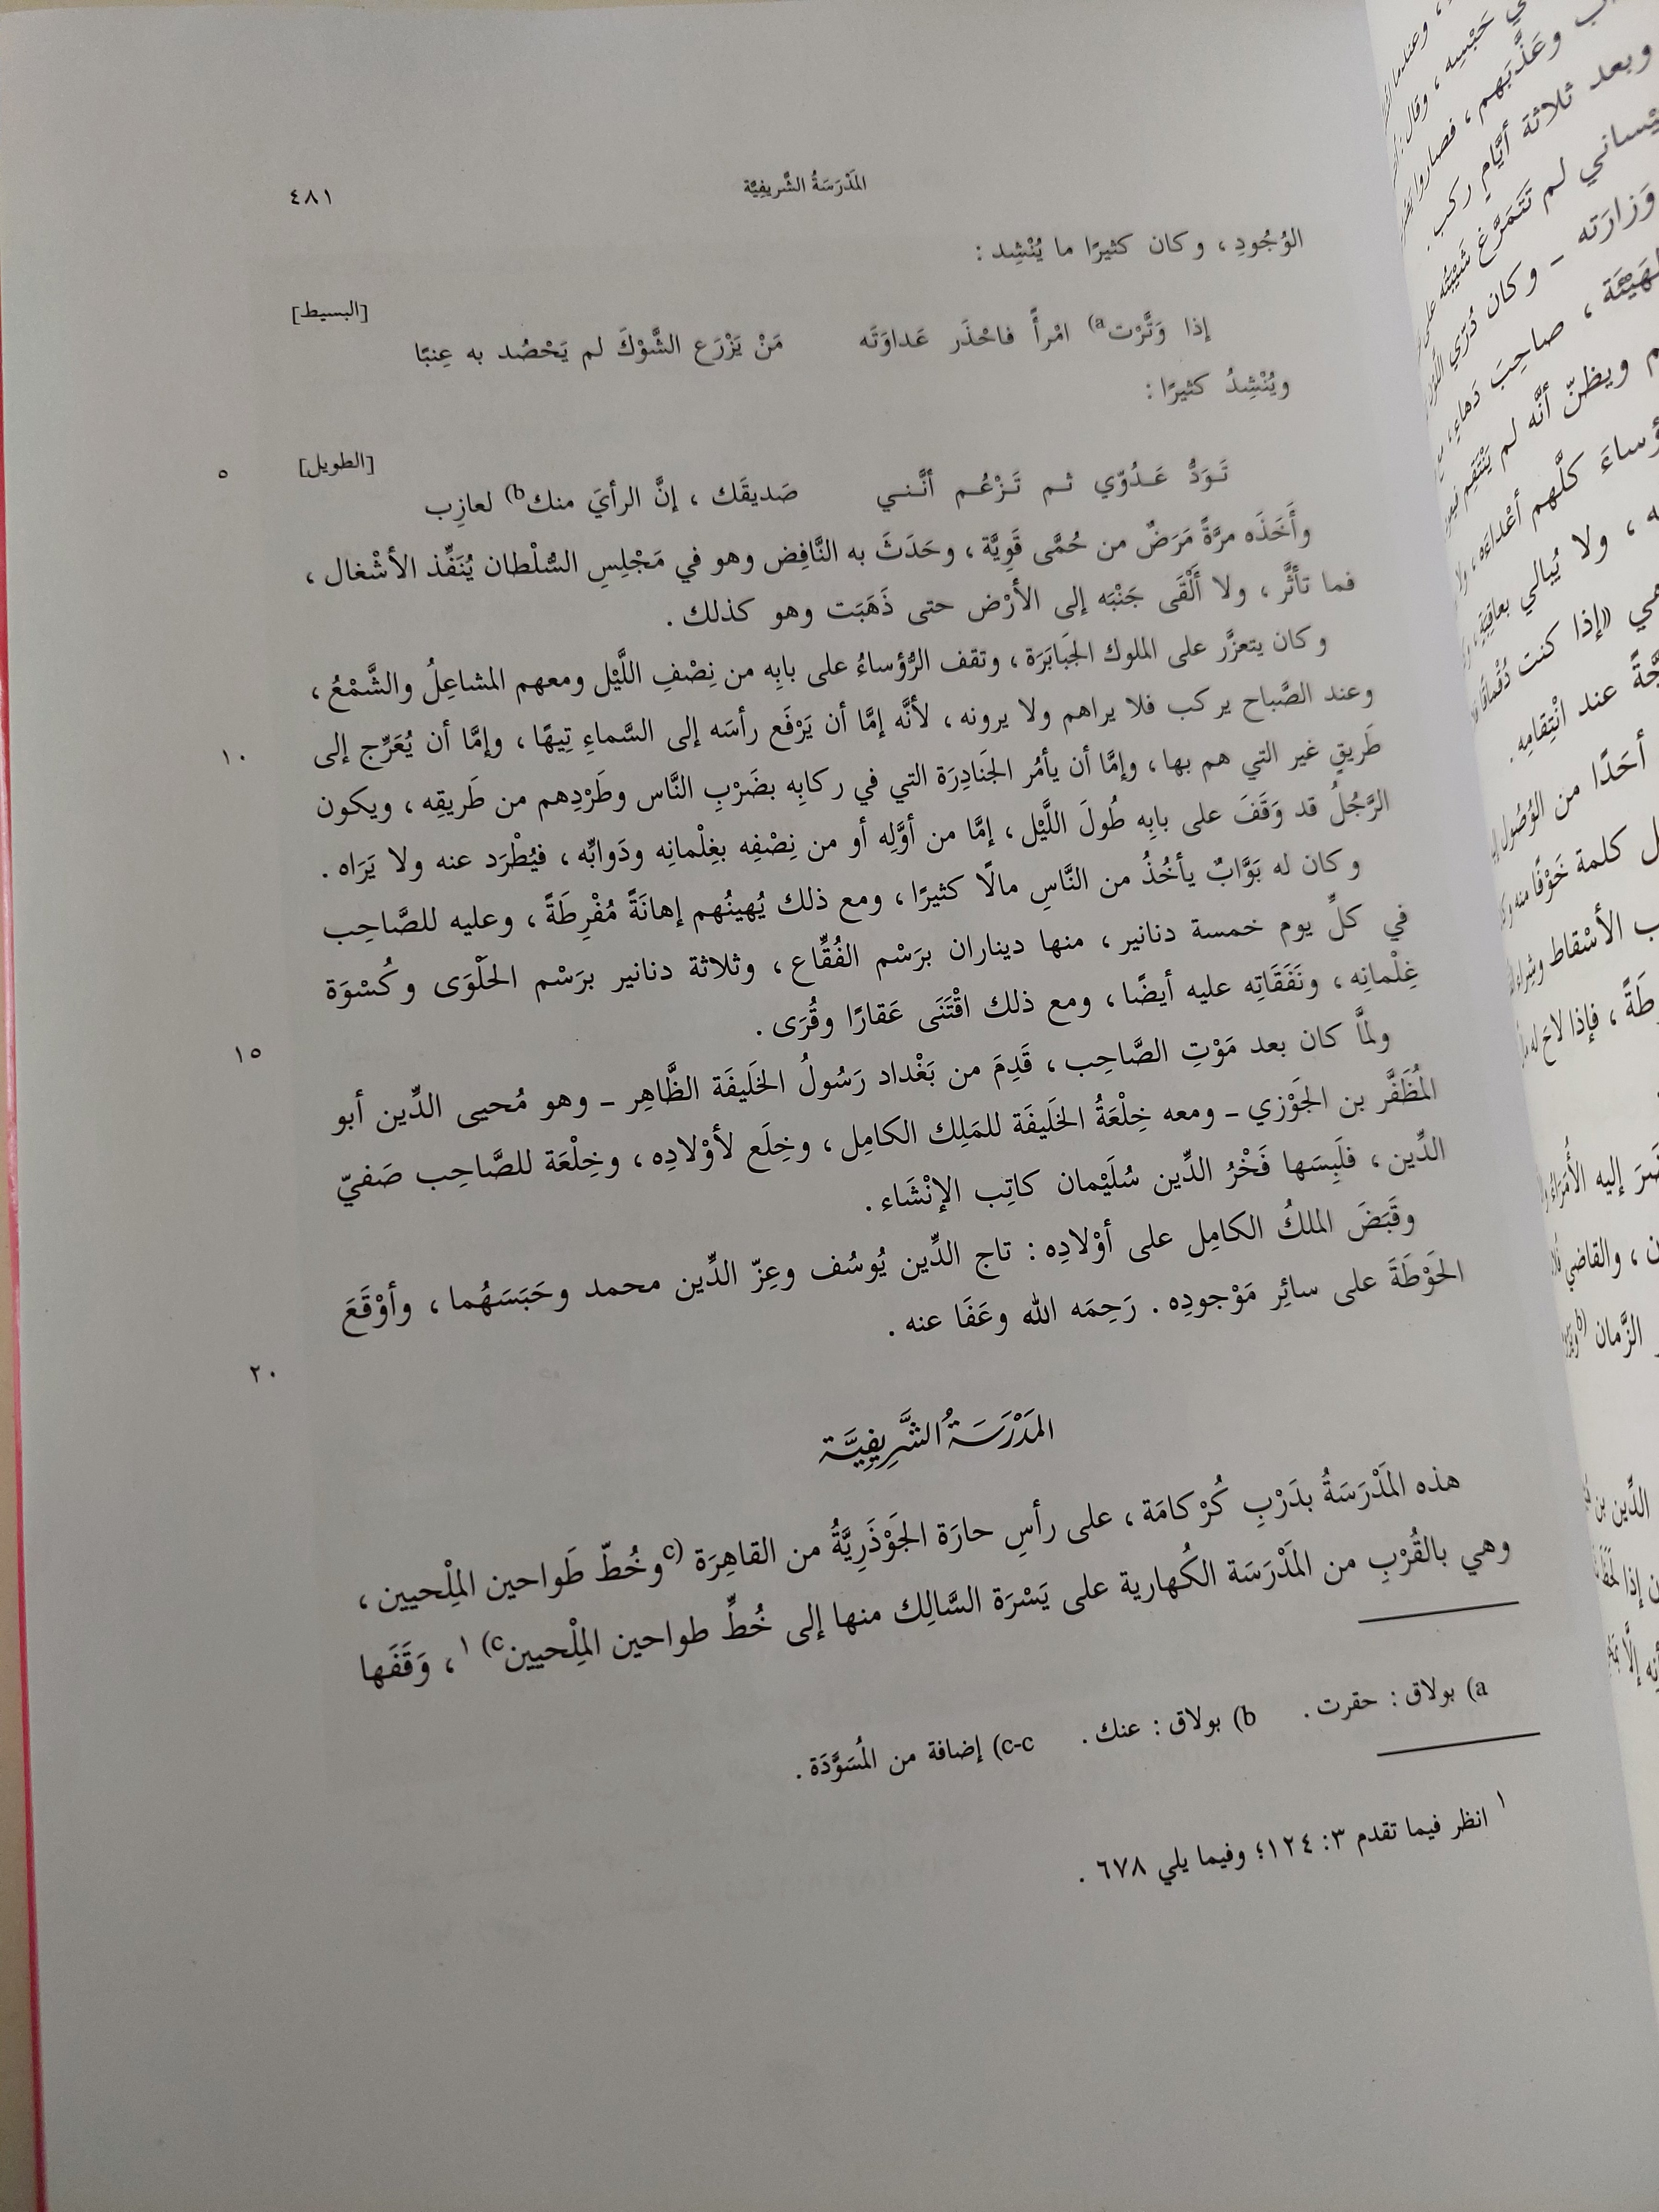 المَدْرَسَةُ الشَّريفِيَّة ٤٨١
الوُجُودِ ، وكان كثيرًا ما يُنْشِد :
[البسيط]
إذا وَتَّرْت a) امْرأً فاحْذَر عَداوَتَه مَنْ يَزْرَع الشَّوْكَ لم يَحْصُد به عِنبًا
ويُنْشِدُ كثيرًا :
٥ [الطويل]
تَوَدُّ عَدُوّي ثم تَزْعُم أنَّني صَديقَك ، إنَّ الرأيَ منك b) لعازِب
وأَخَذَه مرَّةً مَرَضٌ من حُمَّى قَوِيَّة ، وحَدَثَ به النَّافِض وهو في مَجْلِسِ السُّلْطان يُنَفِّذ الأشْغال ،
فما تأثَّر ، ولا أَلْقَى جَنْبَه إلى الأرْض حتى ذَهَبَت وهو كذلك .
وكان يتعزَّر على الملوك الجَبابَرَة ، وتقف الرُّؤساءُ على بابِه من نِصْفِ اللَّيْل ومعهم المشاعِلُ والشَّمْعُ ،
١٠ وعند الصَّباح يركب فلا يراهم ولا يرونه ، لأنَّه إمَّا أن يَرْفَع رأسَه إلى السَّماءِ تِيهًا ، وإمَّا أن يُعَرِّج إلى
طَريقٍ غير التي هم بها ، وإمَّا أن يأمُر الجَنادِرَة التي في ركابِه بضَرْبِ النَّاس وطَرْدِهم من طَريقِه ، ويكون
الرَّجُلُ قد وَقَفَ على بابِه طُولَ اللَّيْل ، إمَّا من أوَّلِه أو من نِصْفِه بغِلْمانِه ودَوابِّه ، فيُطْرَد عنه ولا يَرَاه .
وكان له بَوَّابٌ يأخُذُ من النَّاسِ مالًا كثيرًا ، ومع ذلك يُهينُهم إهانَةً مُفْرِطَةً ، وعليه للصَّاحِب
في كلِّ يوم خمسة دنانير ، منها ديناران برَسْم الفُقَّاع ، وثلاثة دنانير برَسْم الحَلْوَى وكُسْوَة
١٥ غِلْمانِه ، ونَفَقَاتِه عليه أيضًا ، ومع ذلك اقْتَنَى عَقارًا وقُرَى .
ولمَّا كان بعد مَوْتِ الصَّاحِب ، قَدِمَ من بَغْداد رَسُولُ الخَليفَة الظَّاهِر ــ وهو مُحيى الدِّين أبو
المُظَفَّر بن الجَوْزي ــ ومعه خِلْعَةُ الخَليفَة للمَلِك الكامِل ، وخِلَع لأوْلادِه ، وخِلْعَة للصَّاحِب صَفيّ
الدِّين ، فلَبِسَها فَخْرُ الدِّين سُلَيْمان كاتِب الإنْشَاء .
وقَبَضَ الملكُ الكامِل على أوْلادِه : تاج الدِّين يُوسُف وعِزّ الدِّين محمد وحَبَسَهُما ، وأوْقَعَ
٢٠ الحَوْطَةَ على سائِر مَوْجودِه . رَحِمَه الله وعَفَا عنه .
المَدْرَسَةُ الشَّرِيفِيَّة
هذه المَدْرَسَةُ بدَرْبِ كُرْكامَة ، على رأسِ حارَة الجَوْذَرِيَّةُ من القاهِرَة c) وخُطّ طَواحين المِلْحيين ،
وهي بالقُرْبِ من المَدْرَسَة الكُهارية على يَسْرَة السَّالِك منها إلى خُطِّ طواحين المِلْحيين c) ١ ، وَقَفَها
a) بولاق : حقرت . b) بولاق : عنك . c-c) إضافة من المُسَوَّدَة .
١ انظر فيما تقدم ٣: ١٢٤؛ وفيما يلي ٦٧٨ .